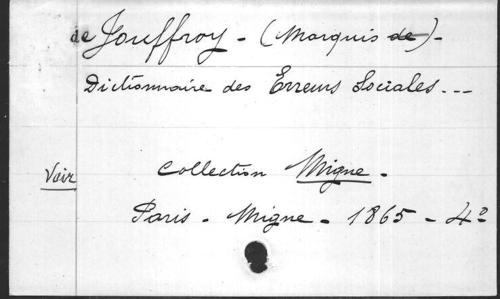 de Jouffroy - (Marquis de) -
Dictionnaire des Erreurs Sociales...
Voir Collection Migne.
Paris - Migne - 1865 - 4º